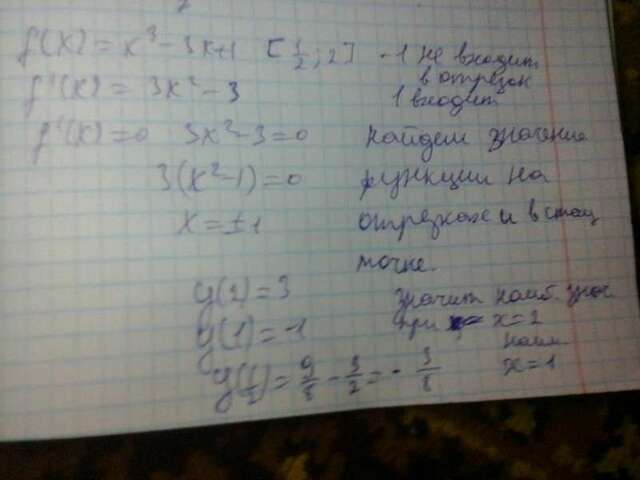 f(x) = x³ - 3x+1 [1/2; 2] -1 не входит
в отрезок
f'(x) = 3x² - 3 1 входит
f'(x) = 0 3x² - 3 = 0 найдем значение
3(x² - 1) = 0 функции на
x = ±1 отрезках и в стац
точке.
y(2) = 3 значит наиб. знач
y(1) = -1 при x = 2
y(1/2) = 9/8 - 3/2 = - 3/8 наим
x = 1